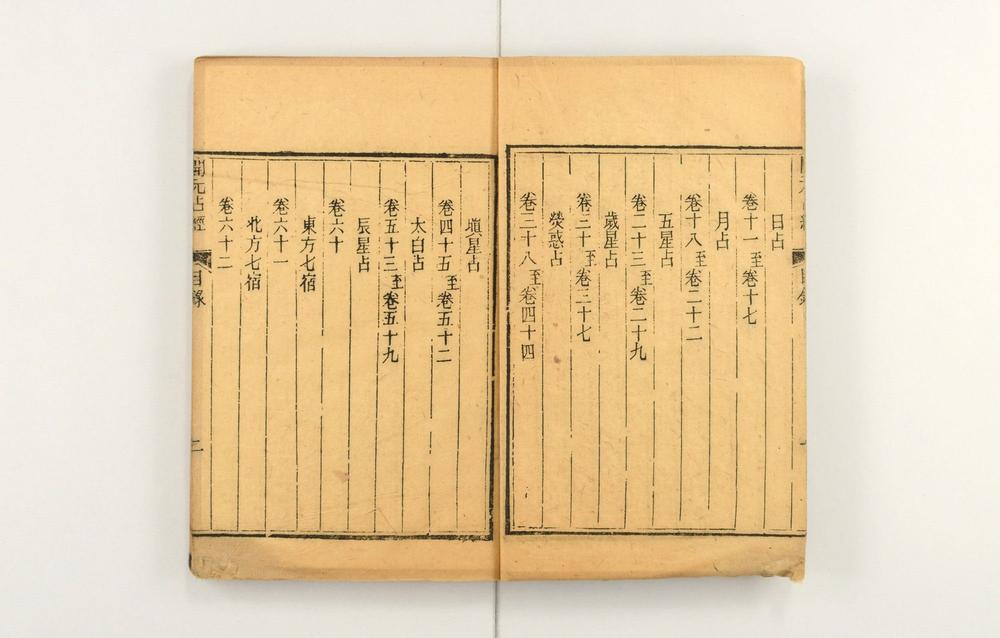 日占
卷十一至卷十七
月占
卷十八至卷二十二
五星占
卷二十三至卷二十九
歲星占
卷三十至卷三十七
熒惑占
卷三十八至卷四十四
塡星占
卷四十五至卷五十二
太白占
卷五十三至卷五十九
辰星占
卷六十
東方七宿
卷六十一
北方七宿
卷六十二
開元占經 目錄 二